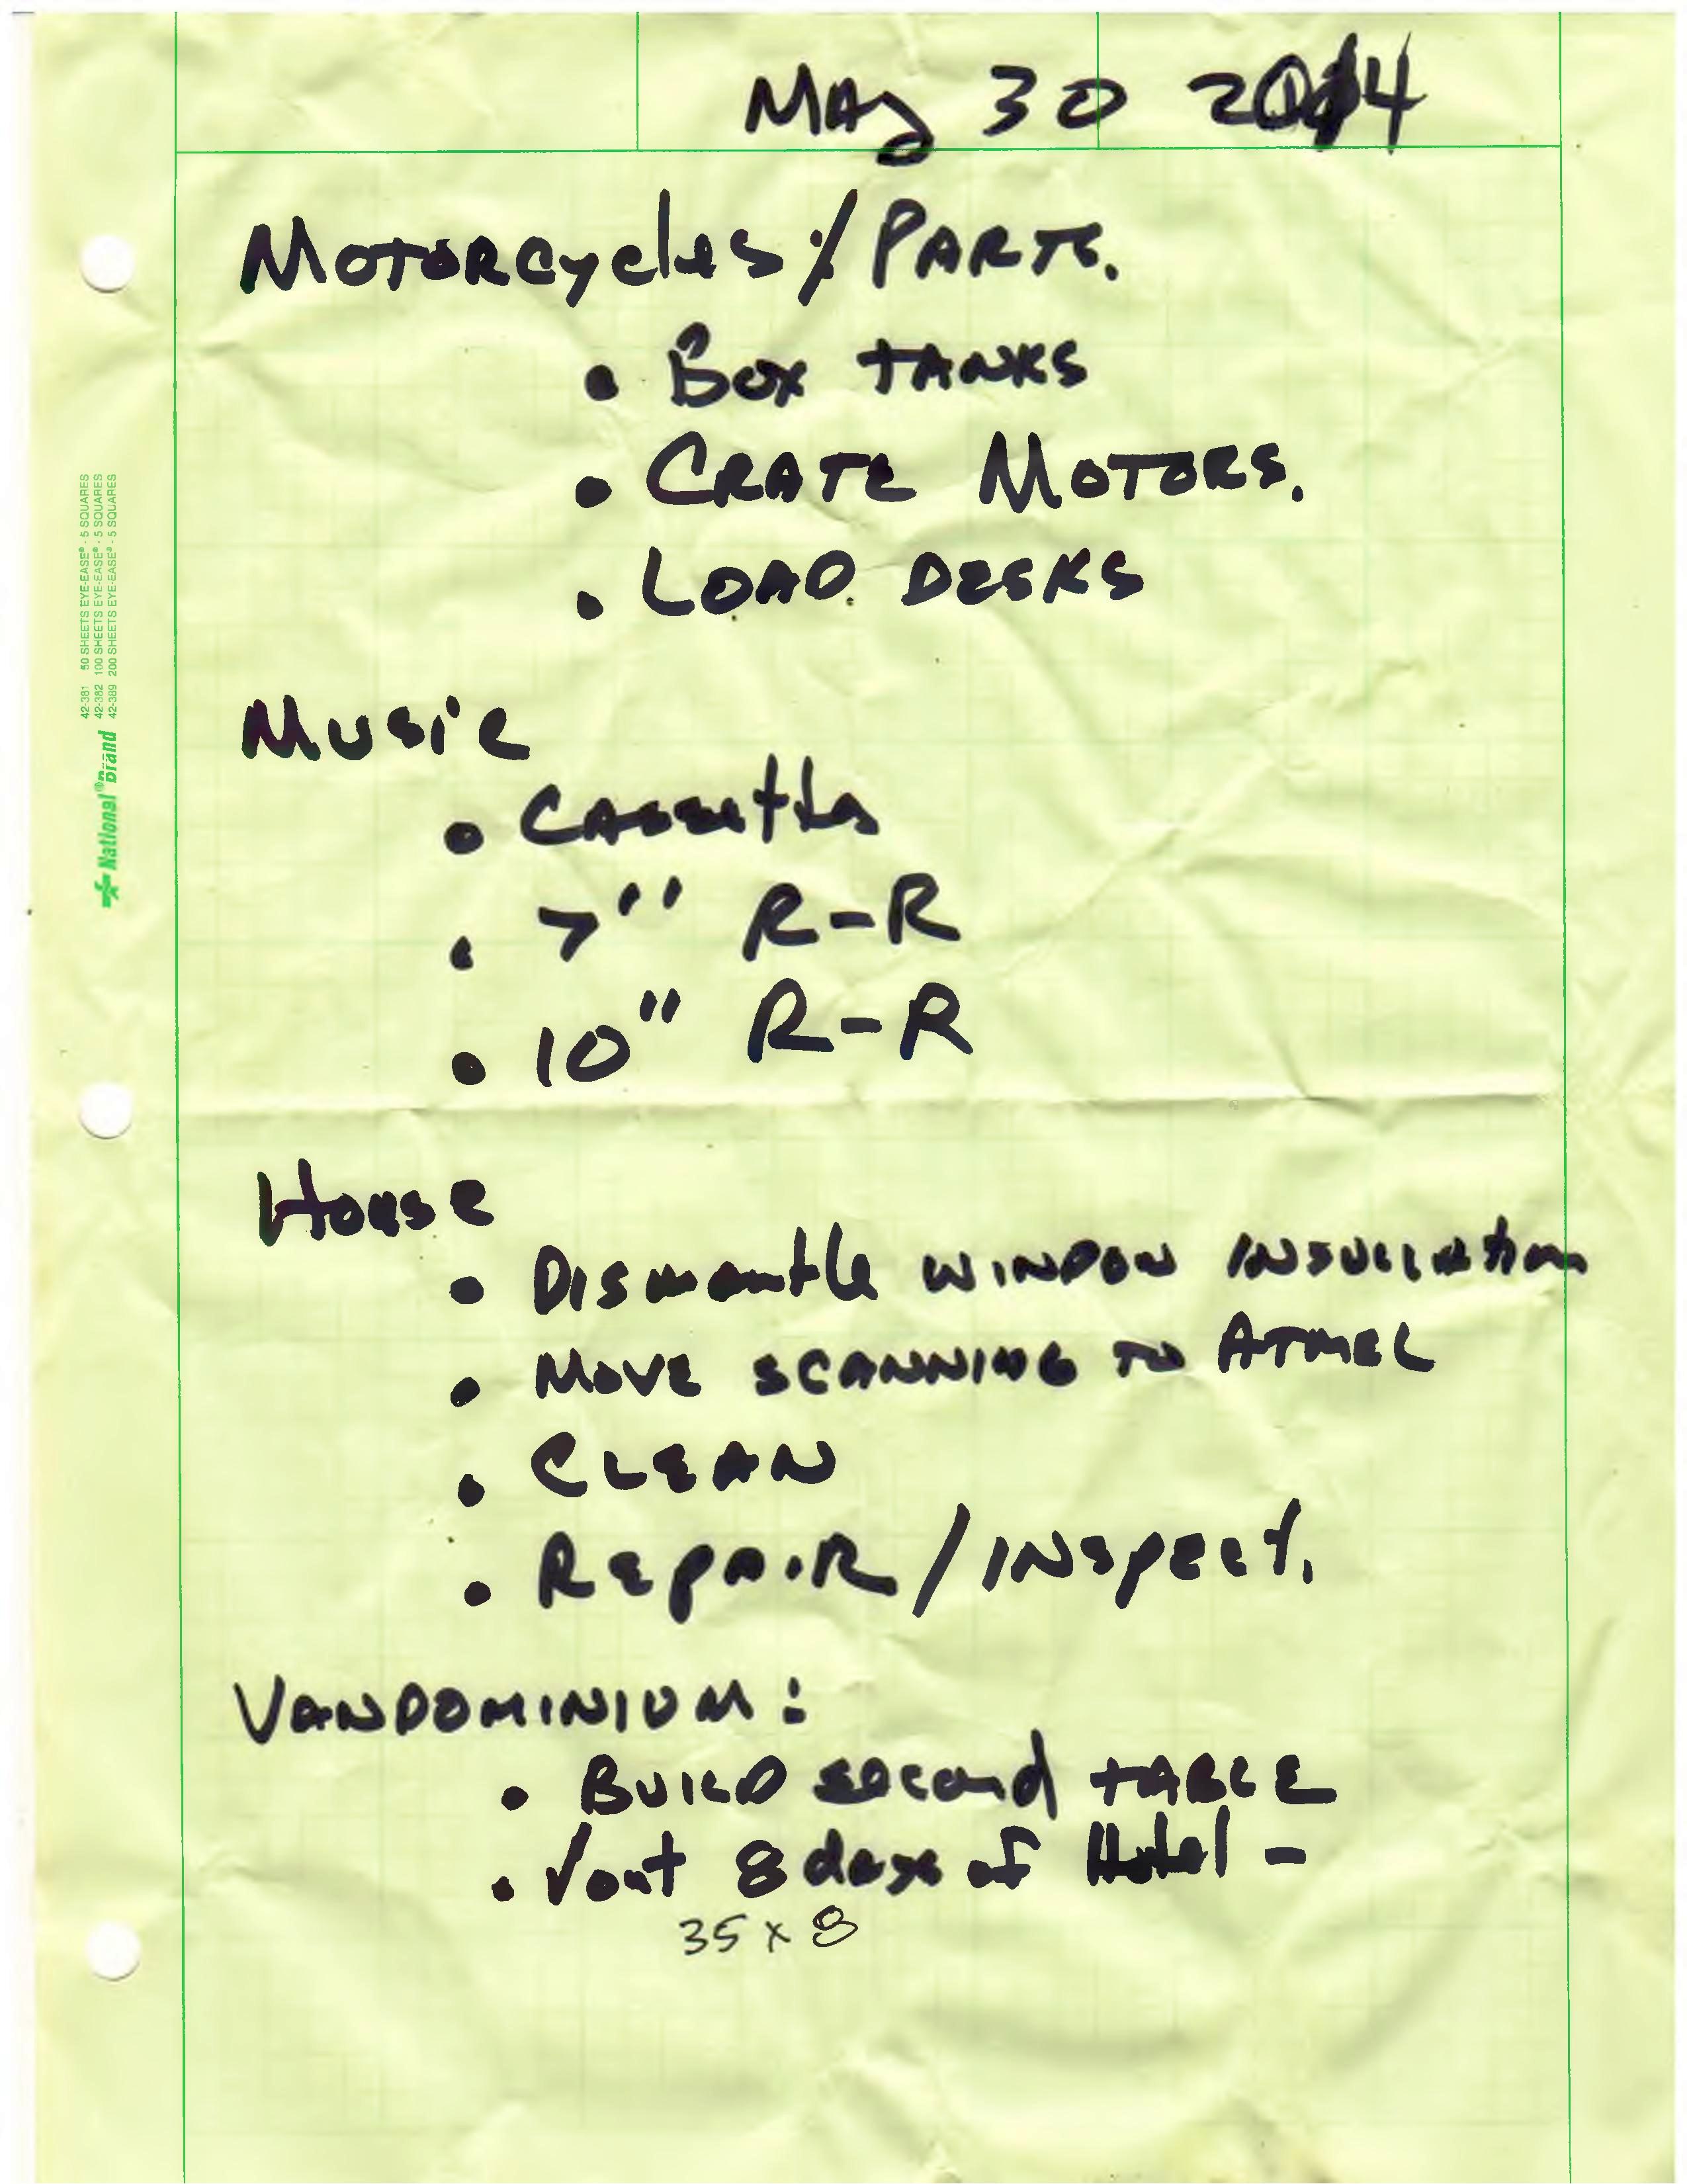 May 30 2014
Motorcycles:/Parts.
• Box tanks
• Crate Motors.
• Load Desks
Music
• Cassettes
• 7" R-R
• 10" R-R
House
• Dismantle window insullation
• Move scanning to Atmel
• Clean
• Repair/Inspect.
Vandominium:
• Build second table
• 8 days of Hotel -
35 x 8
42-381 50 SHEETS EYE-EASE® - 5 SQUARES
42-382 100 SHEETS EYE-EASE® - 5 SQUARES
42-389 200 SHEETS EYE-EASE® - 5 SQUARES
National® Brand